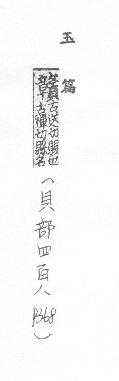 玉篇
古送切賜也
古禫切縣名
(貝部四百八 p368)